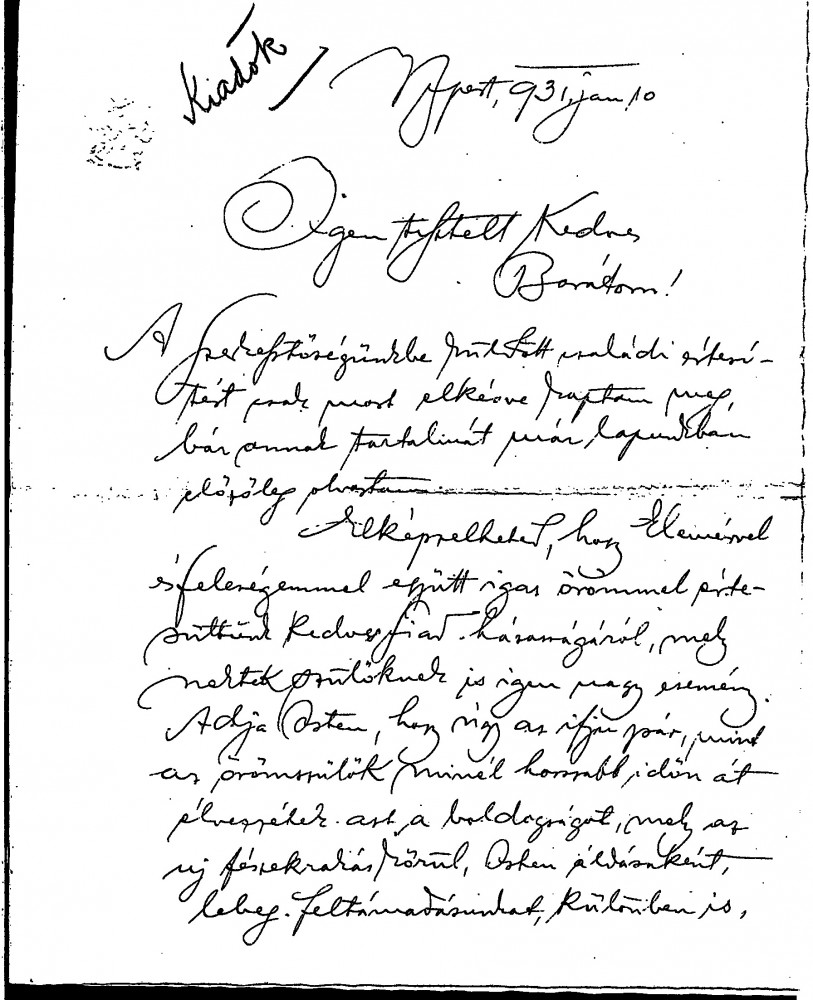 Kiadók
Ujpest, 931, jan, 10
Igen tisztelt Kedves
Barátom!
A szerkesztőségünkbe küldött családi értesi-
tést csak most elkésve kaptam meg,
bár annak tartalmát már lapunkban
előzőleg olvastam.
Elképzelheted, hogy Elemérrel
és feleségemmel együtt igaz örömmel érte-
sültünk kedves fiad házasságáról, mely
nektek szülőknek is igen nagy esemény.
Adja Isten, hogy úgy az ifju pár, mint
az örömszülők minél hosszabb időn át
élvezzétek azt a boldogságot, mely az
uj fészekrakás körül, Isten áldásaként,
lebeg. Feltámadásunkat, különben is,